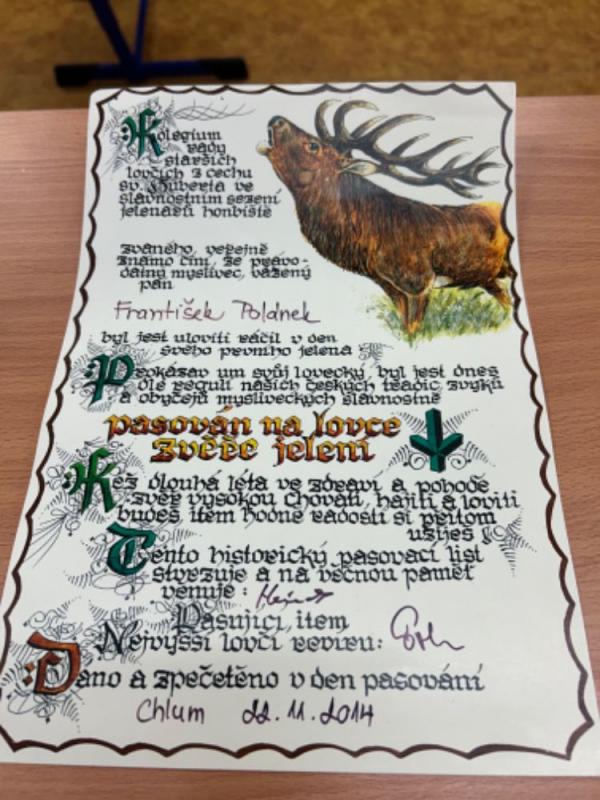 Kolegium
rady
starších
lovčích z cechu
sv. Huberta ve
slavnostním sezení
jelenářů honbiště
zvaného, veřejně
známo činí, že právo-
datný myslivec, vážený
pan
František Poldnek
byl jest uloviti ráčil v den
svého prvního jelena
Prokázav um svůj lovecký, byl jest dnes
dle regulí našich českých tradic, zvyků
a obyčejů mysliveckých slavnostně
pasován na lovce
zvěře jelení
Kéž dlouhá léta ve zdraví a pohodě
zvěř vysokou chovati, hájiti a loviti
budeš item hodně radosti si přitom
užiješ!
Tento historický pasovací list
stvrzuje a na věčnou paměť
věnuje:
Pasující, item
Nejvyšší lovčí revíru:
Dáno a zpečetěno v den pasování
Chlum 22.11.2014